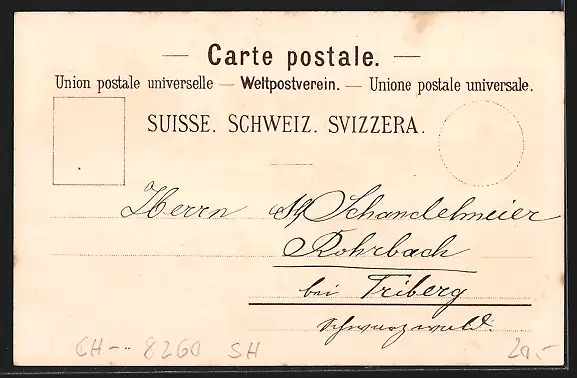 — Carte postale. —
Union postale universelle — Weltpostverein. — Unione postale universale.
SUISSE. SCHWEIZ. SVIZZERA.
Herrn Schandelmeier
Rohrbach
bei Triberg
Schwarzwald.
CH-- 8260 SH 20.-